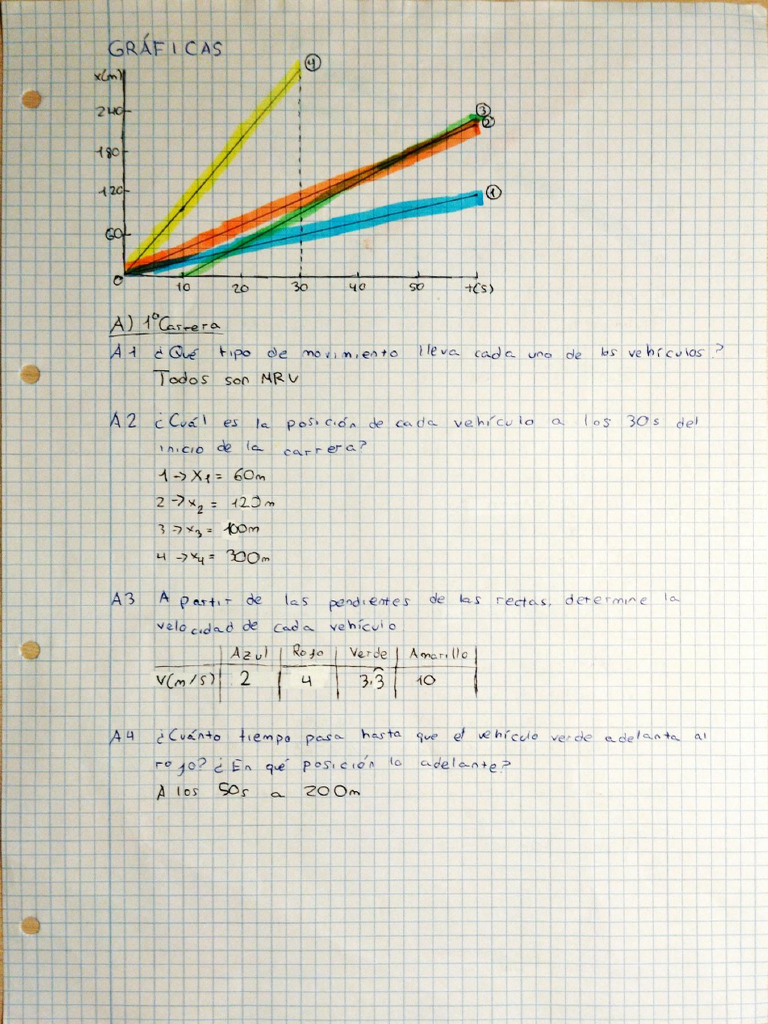 GRÁFICAS
x(m)
4
3
240
2
180
1
120
60
0
10 20 30 40 50 t(s)
A) 1º Carrera
A1 ¿Qué tipo de movimiento lleva cada uno de los vehículos?
Todos son MRU
A2 ¿Cuál es la posición de cada vehículo a los 30s del
inicio de la carrera?
1 → X1 = 60m
2 → x2 = 120m
3 → x3 = 100m
4 → x4 = 300m
A3 A partir de las pendientes de las rectas, determine la
velocidad de cada vehículo
Azul Rojo Verde Amarillo
V(m/s) 2 4 3.3 10
A4 ¿Cuánto tiempo pasa hasta que el vehículo verde adelanta al
rojo? ¿En qué posición lo adelante?
A los 50s a 200m